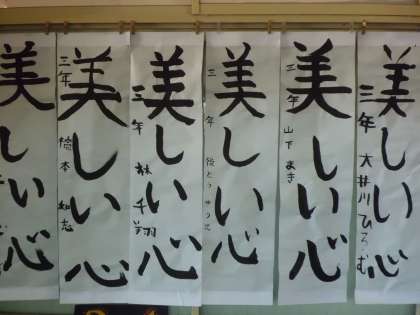 美しい心
三年
大井川ひろむ
美しい心
三年
山下まき
美しい心
三年
美しい心
三年
林千翔
美しい心
三年
橋本和志
美しい心